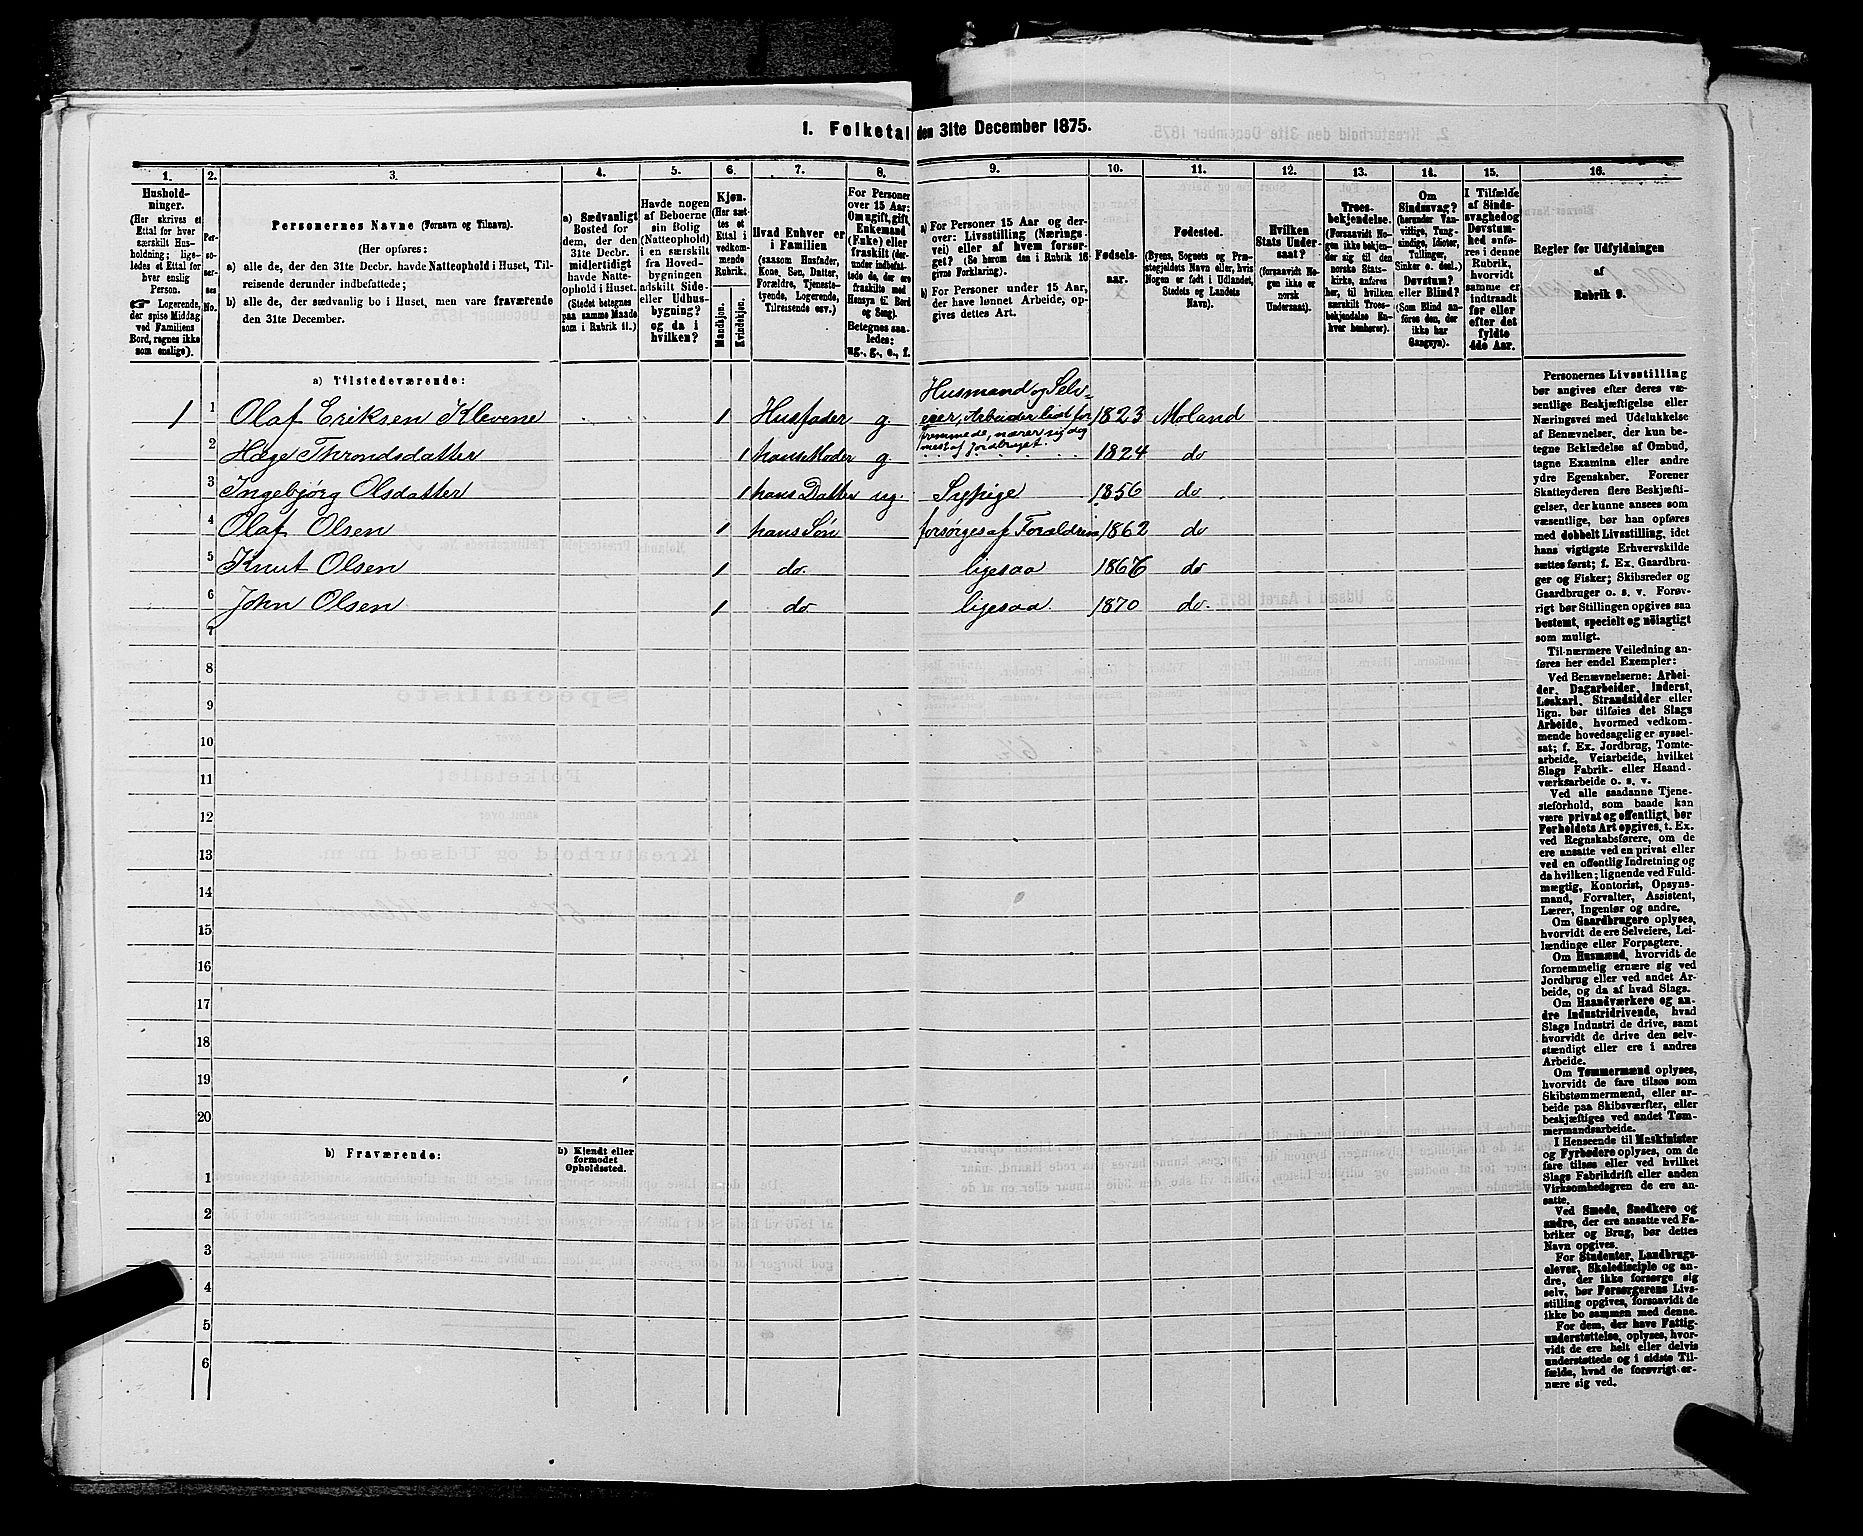 1. Folketal den 31te December 1875.
1. 2. 3. 4. 5. 6. 7. 8. 9. 10. 11. 12. 13. 14. 15. 16.
Hushold-
ninger.
(Her skrives et
Ettal for hver
særskilt Hus-
holdning; lige-
ledes et Ettal for
hver enslig
Person.
☞ Logerende,
der spise Middag
ved Familiens
Bord, regnes ikke
som enslige).
Per-
so-
ner-
nes
No.
Personernes Navne (Fornavn og Tilnavn).
(Her opføres:
a) alle de, der den 31te Decbr. havde Natteophold i Huset, Til-
reisende derunder indbefattede;
b) alle de, der sædvanlig bo i Huset, men vare fraværende
den 31te December.
a) Sædvanligt
Bosted for
dem, der den
31te Decbr.
midlertidigt
havde Natte-
ophold i Huset.
(Stedet betegnes
paa samme Maade
som i Rubrik 11.)
Havde nogen
af Beboerne
sin Bolig
(Natteophold)
i en særskilt
fra Hoved-
bygningen
adskilt Side-
eller Udhus-
bygning?
og da i
hvilken?
Kjøn.
(Her sæt-
tes et
Ettal i
vedkom-
mende
Rubrik.
Mandkjøn.
Kvindekjøn.
Hvad Enhver er
i Familien
(saasom Husfader,
Kone, Søn, Datter,
Forældre, Tjeneste-
tyende, Logerende,
Tilreisende osv.)
For Personer
over 15 Aar:
Om ugift, gift,
Enkemand
(Enke) eller
fraskilt (der-
under indbefat-
tede de, der ere
fraskilte med
Hensyn til Bord
og Seng).
Betegnes saa-
ledes:
ug., g., e., f.
a) For Personer 15 Aar og der-
over: Livsstilling (Nærings-
vei) eller af hvem forsør-
get? (Se herom den i Rubrik 16
givne Forklaring).
b) For Personer under 15 Aar,
der have lønnet Arbeide, op-
gives dettes Art.
Fødsels-
aar.
Fødested.
(Byens, Sognets og Præ-
stegjeldets Navn eller, hvis
Nogen er født i Udlandet,
Stedets og Landets
Navn).
Hvilken
Stats Under-
saat?
(forsaavidt No-
gen ikke er
norsk
Undersaat).
Troes-
bekjendelse.
(Forsaavidt No-
gen ikke bekjen-
der sig til den
norske Stats-
kirke, anføres
her, til hvilken
særskilt Troes-
bekjendelse En-
hver henhører).
Om
Sindssvag?
(herunder Van-
vittige, Tung-
sindige, Idioter,
Tullinger,
Sinker o. desl.)
Døvstum?
eller Blind?
(Som Blind an-
føres den, der
ikke har
Gangsyn).
I Tilfælde
af Sinds-
svaghed og
Døvstum-
hed anfø-
res i denne
Rubrik,
hvorvidt
samme er
indtraadt
før eller
efter det
fyldte
4de Aar.
Regler for Udfyldningen
af
Rubrik 9.
a) Tilstedeværende:
1 1 Olaf Eriksen Klevene 1 Husfader g. Husmand og Selv-eier, Arbeider lidt for fremmede, nærer sig deg mest af Jordbruget. 1823 Moland
2 Hæge Throndsdatter 1 hans Moder g 1824 do
3 Ingebjörg Olsdatter 1 hans Datter ug. Sypige 1856 do
4 Olaf Olsen 1 hans Søn forsørges af Forældrene 1862 do
5 Knut Olsen 1 do. ligesaa 1867 do
6 John Olsen 1 do ligesaa 1870 do.
7
8
9
10
11
12
13
14
15
16
17
18
19
20
b) Fraværende:
b) Kjendt eller
formodet
Opholdssted.
1
2
3
4
5
6
Personernes Livsstilling
bør angives efter deres væ-
sentlige Beskjæftigelse eller
Næringsvei med Udelukkelse
af Benævnelser, der kun be-
tegne Beklædelse af Ombud,
tagne Examina eller andre
ydre Egenskaber. Forener
Skatteyderen flere Beskjæfti-
gelser, der kunne ansees som
væsentlige, bør han opføres
med dobbelt Livsstilling, idet
hans vigtigste Erhvervskilde
sættes først; f. Ex. Gaardbru-
ger og Fisker; Skibsreder og
Gaardbruger o. s. v. Forøv-
rigt bør Stillingen opgives saa
bestemt, specielt og nöiagtigt
som muligt.
Til nærmere Veiledning an-
føres her endel Exempler:
Ved Benævnelserne: Arbei-
der, Dagarbeider, Inderst,
Løskarl, Strandsidder eller
lign. bør tilføies det Slags
Arbeide, hvormed vedkom-
mende hovedsagelig er syssel-
sat; f. Ex. Jordbrug, Tomte-
arbeide, Veiarbeide, hvilket
Slags Fabrik- eller Haand-
værksarbeide o. s. v.
Ved alle saadanne Tjene-
steforhold, som baade kan
være privat og offentligt, bør
Forholdets Art opgives, t. Ex.
ved Regnskabsførere, om de
ere ansatte ved en privat eller
ved en offentlig Indretning og
da hvilken; lignende ved Fuld-
mægtig, Kontorist, Opsyns-
mand, Forvalter, Assistent,
Lærer, Ingeniør og andre.
Om Gaardbrugere oplyses,
hvorvidt de ere Selveiere, Lei-
lændinge eller Forpagtere.
Om Husmænd, hvorvidt de
fornemmelig ernære sig ved
Jordbrug eller ved andet Ar-
beide, og da af hvad Slags.
Om Haandværkere og an-
dre Industridrivende, hvad
Slags Industri de drive, samt
hvorvidt de drive den selv-
stændigt eller ere i andres
Arbeide.
Om Tømmermænd oplyses,
hvorvidt de fare tilsøs som
Skibstømmermænd, eller ar-
beide paa Skibsværfter, eller
beskjæftiges ved andet Tøm-
mermandsarbeide.
I Henseende til Maskinister
og Fyrbødere oplyses, om de
fare tilsøs eller ved hvilket
Slags Fabrikdrift eller anden
Virksomhedsgren de ere an-
satte.
Ved Smede, Snedkere og
andre, der ere ansatte ved Fa-
briker og Brug, bør dettes
Navn opgives.
For Studenter, Landbrugs-
elever, Skoledisciple og an-
dre, der ikke forsørge sig
selv, bør Forsørgerens Livs-
stilling opgives, forsaavidt de
ikke bo sammen med denne.
For dem, der have Fattig-
understøttelse, oplyses, hvor-
vidt de ere helt eller delvis
understøttede og i sidste Til-
fælde, hvad de forøvrigt er-
nære sig ved.